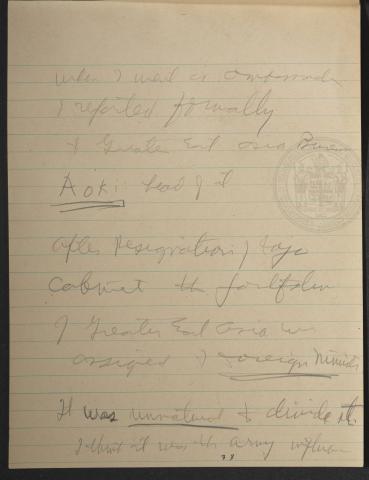 when I went as ambassador
I reported formally
to Greater East Asia Bureau
Aoki head of it
after resignation of Tojo
cabinet the portfolio
of Greater East Asia was
assigned to Foreign Minister
It was unnatural to divide it.
I think it was the army influence